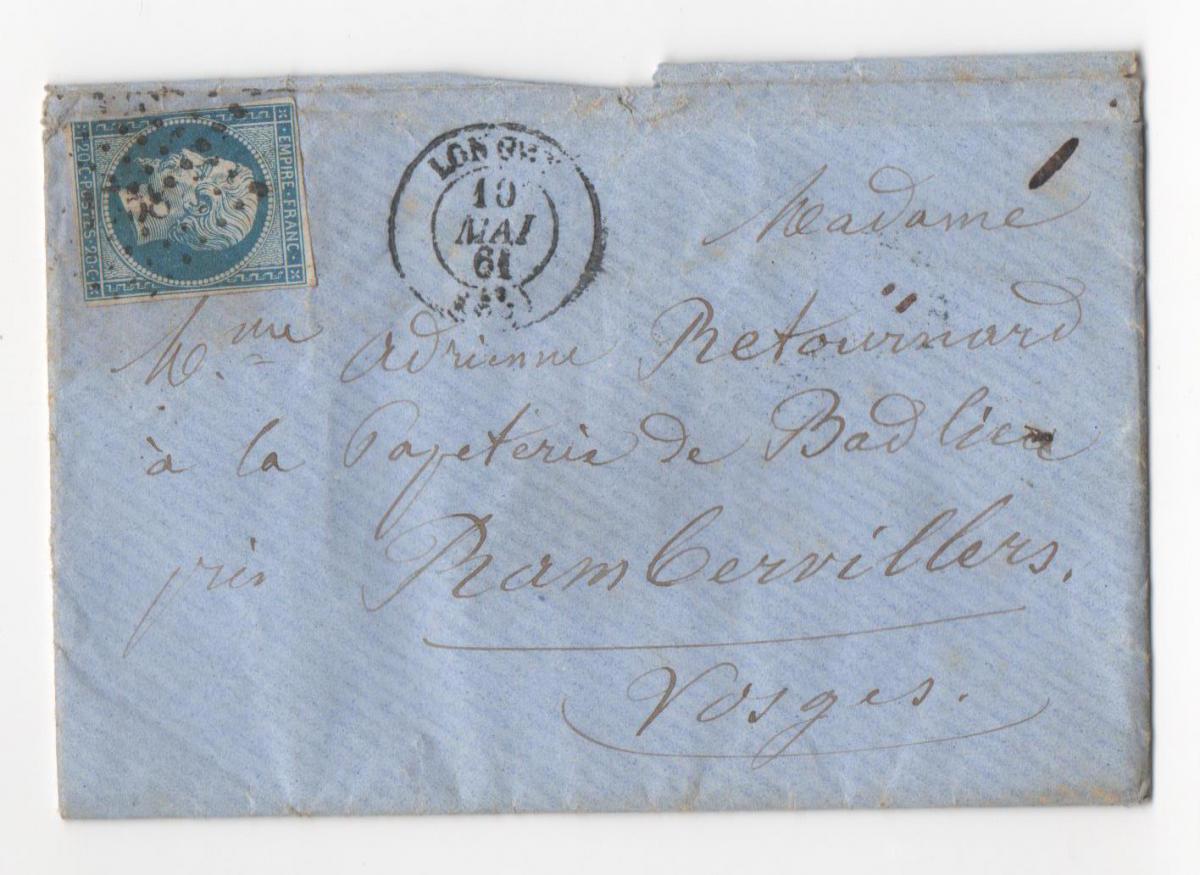 EMPIRE · FRANC ·
· 20 · C · POSTES · 20 · C ·
LONGWY
10
MAI
61
Madame
Mme Adrienne Retournard
à la Papeterie de Bad lieu
près Rambervillers.
Vosges.